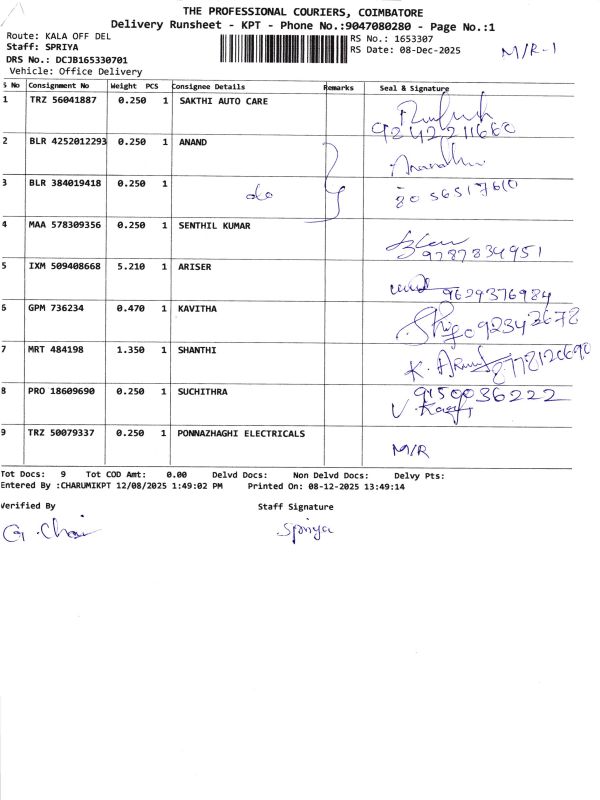 THE PROFESSIONAL COURIERS, COIMBATORE
Delivery Runsheet - KPT - Phone No.:9047080280 - Page No.:1
Route: KALA OFF DEL
RS No.: 1653307
Staff: SPRIYA
RS Date: 08-Dec-2025
M/R-1
DRS No.: DCJB165330701
Vehicle: Office Delivery
S No Consignment No Weight PCS Consignee Details Remarks Seal & Signature
1 TRZ 56041887 0.250 1 SAKTHI AUTO CARE
9242211660
2 BLR 4252012293 0.250 1 ANAND
3 BLR 384019418 0.250 1 do 8056517610
4 MAA 578309356 0.250 1 SENTHIL KUMAR
9787834951
5 IXM 509408668 5.210 1 ARISER
9629376984
6 GPM 736234 0.470 1 KAVITHA
7 MRT 484198 1.350 1 SHANTHI
8778120690
8 PRO 18609690 0.250 1 SUCHITHRA 9150036222
9 TRZ 50079337 0.250 1 PONNAZHAGHI ELECTRICALS
M/R
Tot Docs: 9 Tot COD Amt: 0.00 Delvd Docs: Non Delvd Docs: Delvy Pts:
Entered By :CHARUMIKPT 12/08/2025 1:49:02 PM Printed On: 08-12-2025 13:49:14
Verified By Staff Signature
Spriya